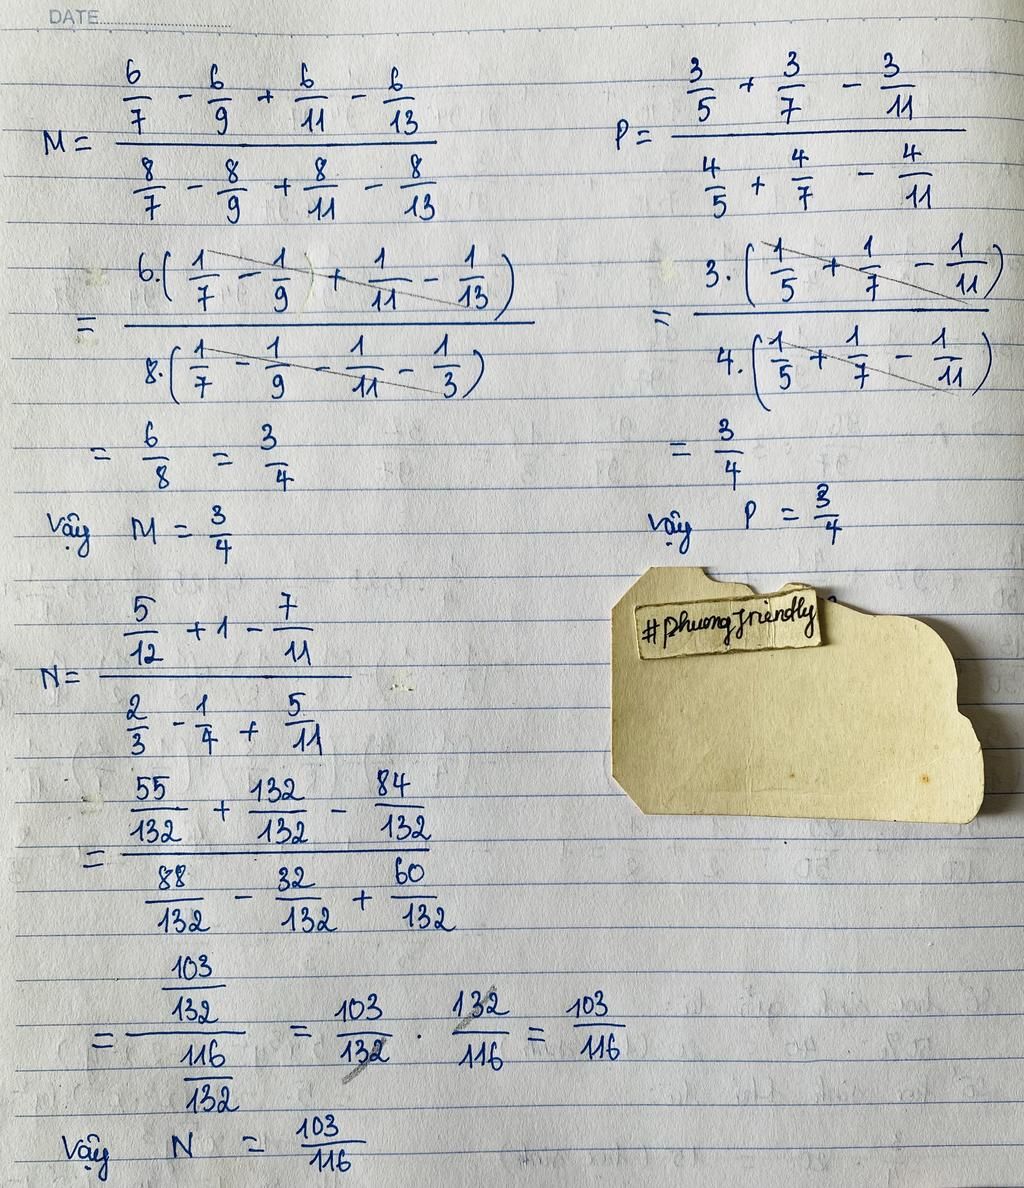 DATE
M = \frac{\frac{6}{7} - \frac{6}{9} + \frac{6}{11} - \frac{6}{13}}{\frac{8}{7} - \frac{8}{9} + \frac{8}{11} - \frac{8}{13}}
= \frac{6.(\frac{1}{7} - \frac{1}{9}) + \frac{1}{11} - \frac{1}{13})}{8.(\frac{1}{7} - \frac{1}{9} - \frac{1}{11} - \frac{1}{3})}
= \frac{6}{8} = \frac{3}{4}
Vậy M = \frac{3}{4}
P = \frac{\frac{3}{5} + \frac{3}{7} - \frac{3}{11}}{\frac{4}{5} + \frac{4}{7} - \frac{4}{11}}
= \frac{3.(\frac{1}{5} + \frac{1}{7} - \frac{1}{11})}{4.(\frac{1}{5} + \frac{1}{7} - \frac{1}{11})}
= \frac{3}{4}
Vậy P = \frac{3}{4}
#phuongfriendly
N = \frac{\frac{5}{12} + 1 - \frac{7}{11}}{\frac{2}{3} - \frac{1}{4} + \frac{5}{11}}
= \frac{\frac{55}{132} + \frac{132}{132} - \frac{84}{132}}{\frac{88}{132} - \frac{32}{132} + \frac{60}{132}}
= \frac{\frac{103}{132}}{\frac{116}{132}} = \frac{103}{132} . \frac{132}{116} = \frac{103}{116}
Vậy N = \frac{103}{116}